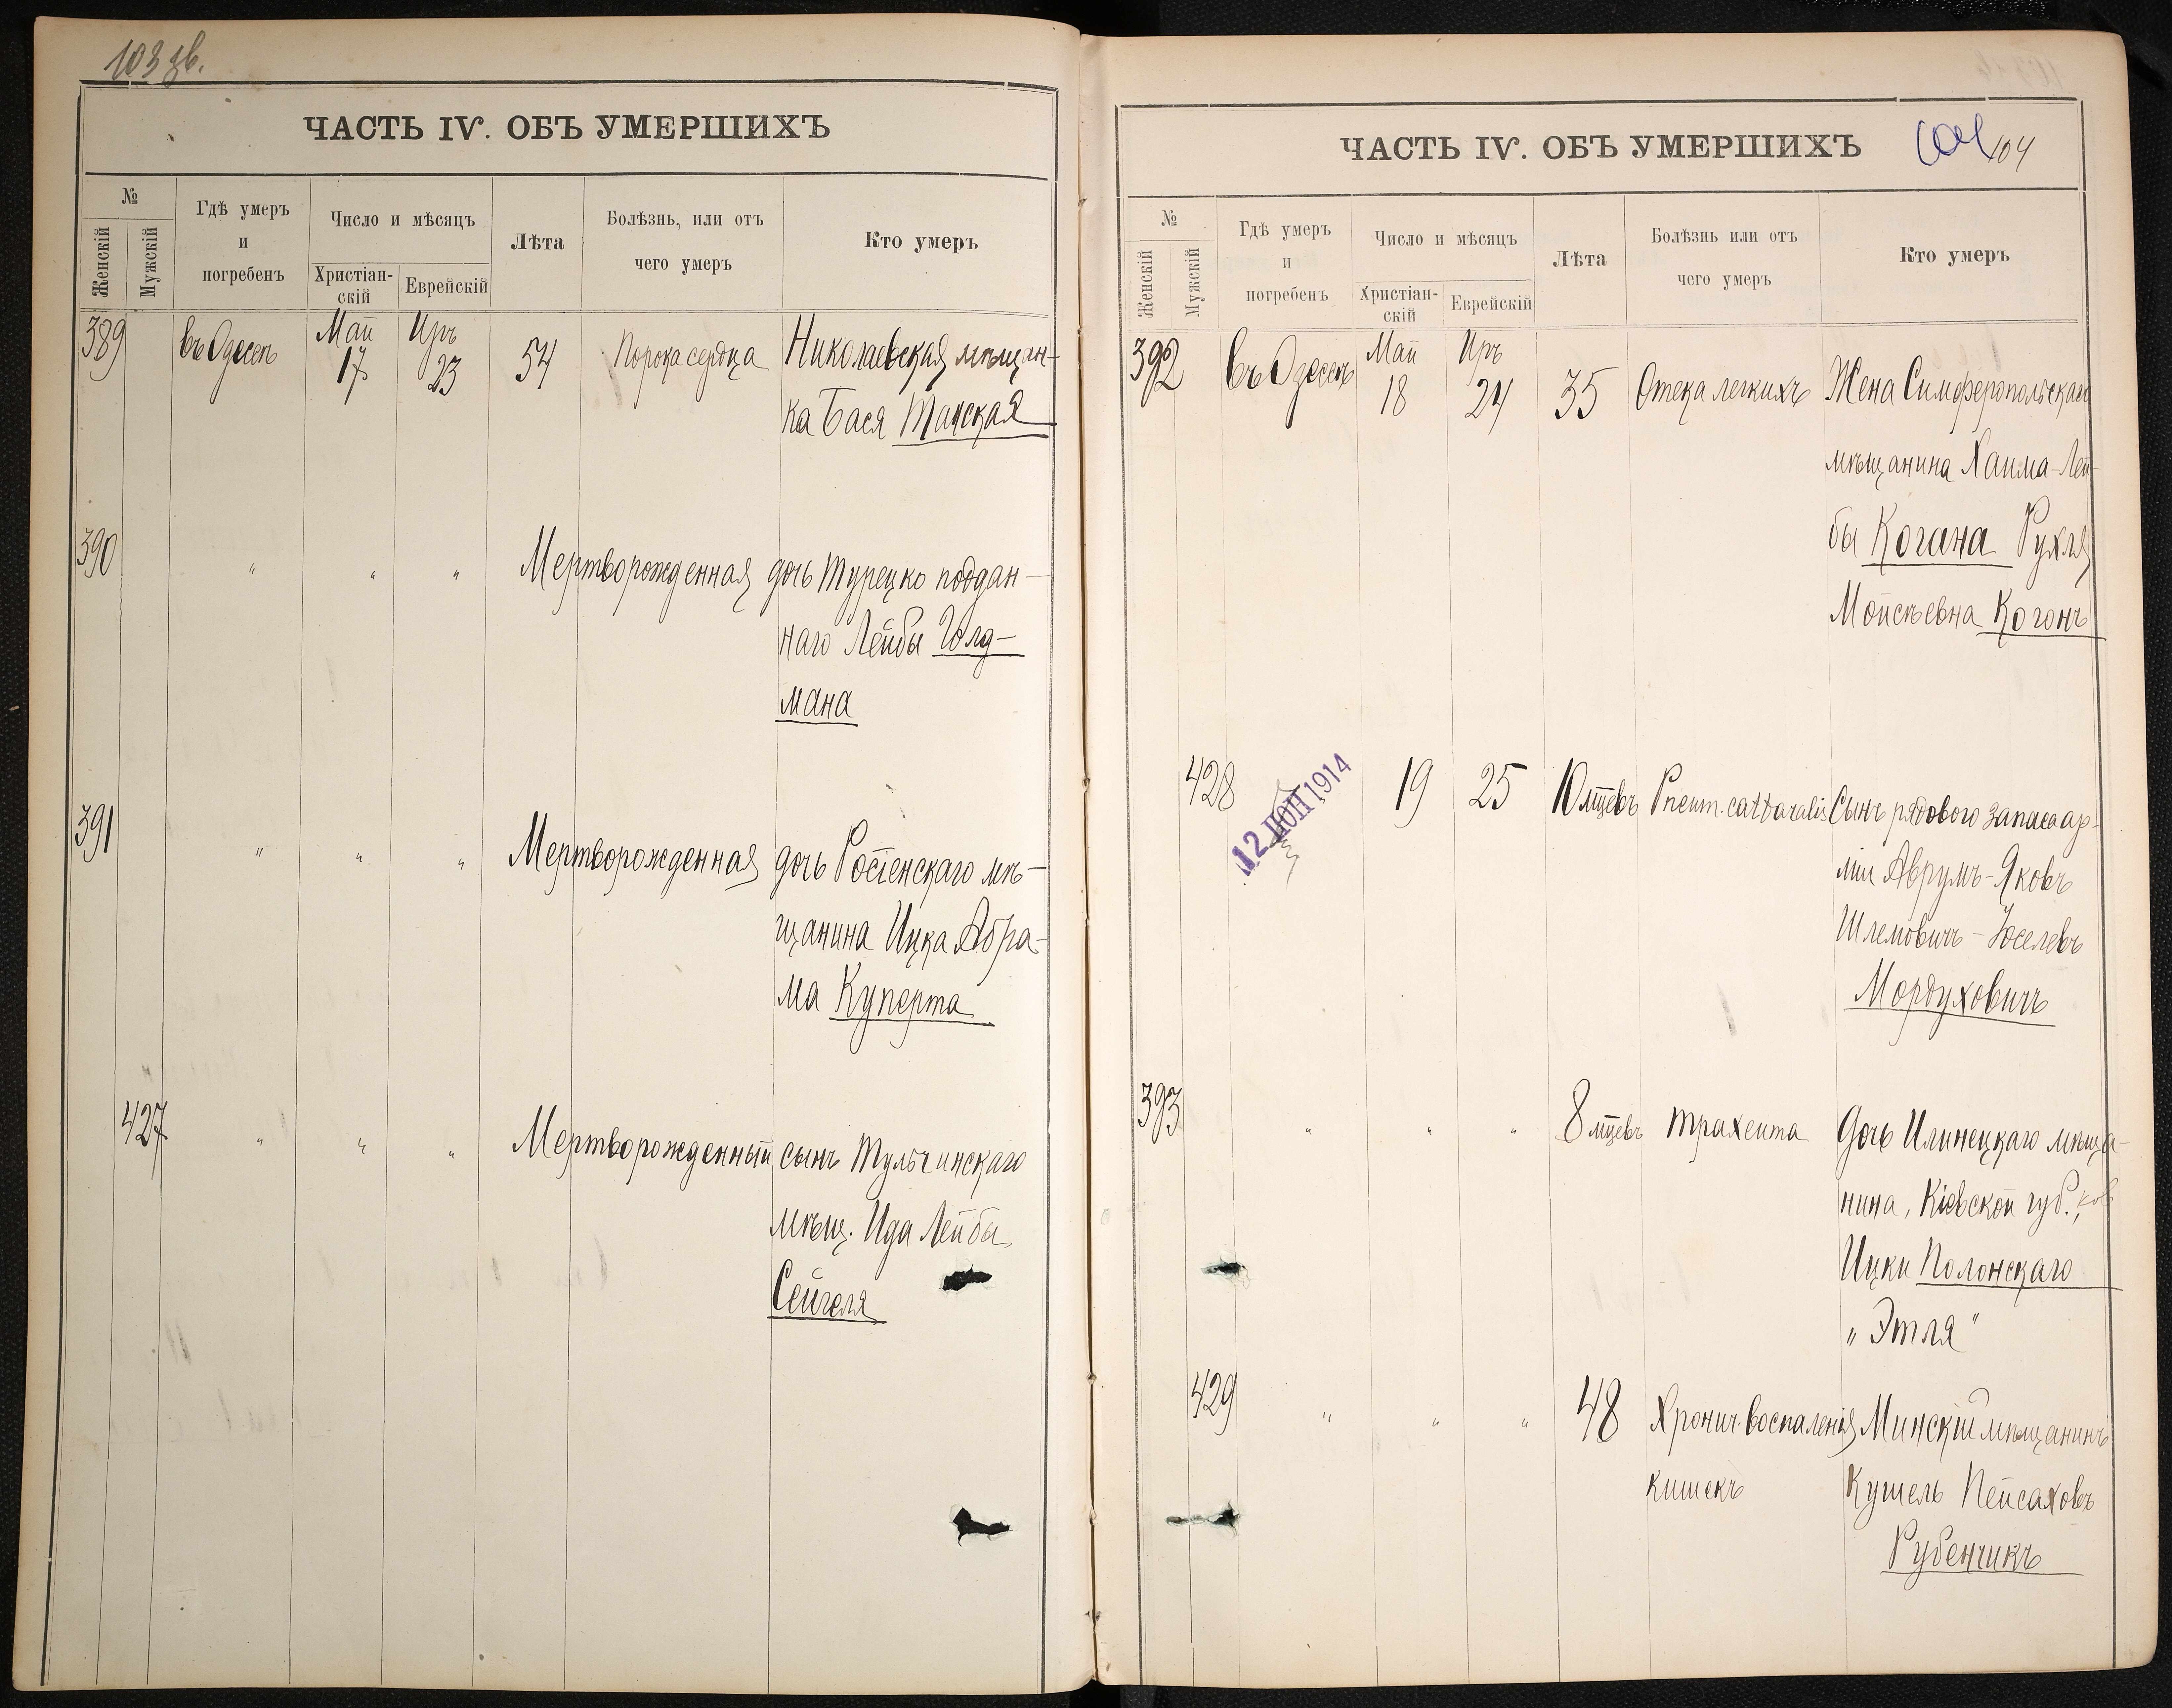 103 зв.
ЧАСТЬ IV. ОБЪ УМЕРШИХЪ
№
Женскій
Мужскій
Гдѣ умеръ
и
погребенъ
Число и мѣсяцъ
Христіан-
скій
Еврейскій
Лѣта
Болѣзнь, или отъ
чего умеръ
Кто умеръ
389 въ Одессѣ Май 17 Иръ 23 54 Порока сердца Николаевская мѣщан-
ка Бася Танская
390 " " " Мертворожденная дочь турецко поддан-
наго Лейбы Голд-
мана
391 " " " Мертворожденная дочь Росіенскаго мѣ-
щанина Ицка Абра-
ма Куперта
427 " " " Мертворожденный сынъ Тульчинскаго
мѣщ. Ида Лейбы
Сейгеля
ЧАСТЬ IV. ОБЪ УМЕРШИХЪ
104 104
№
Женскій
Мужскій
Гдѣ умеръ
и
погребенъ
Число и мѣсяцъ
Христіан-
скій
Еврейскій
Лѣта
Болѣзнь или отъ
чего умеръ
Кто умеръ
392 въ Одессѣ Май 18 Иръ 24 35 Отека легкихъ Жена Симферопольскаго
мѣщанина Хаима-Лей-
бы Когана Рухля
Мойсѣевна Когонъ
428 12 ІЮН 1914 19 25 10 мцевъ Pneum. cattaralis Сынъ рядового запаса ар-
міи Аврумъ-Яковъ
Шлемовичъ-Іоселевъ
Мордуховичъ
393 " " " 8 мцевъ трахеита Дочь Илинецкаго мѣща-
нина, Кіевской губ.,
Ицки Полонскаго
„Этля"
429 " " " 48 Хронич. воспаленія Минскій мѣщанинъ
кишекъ Кушель Пейсаховъ
Рубенчикъ